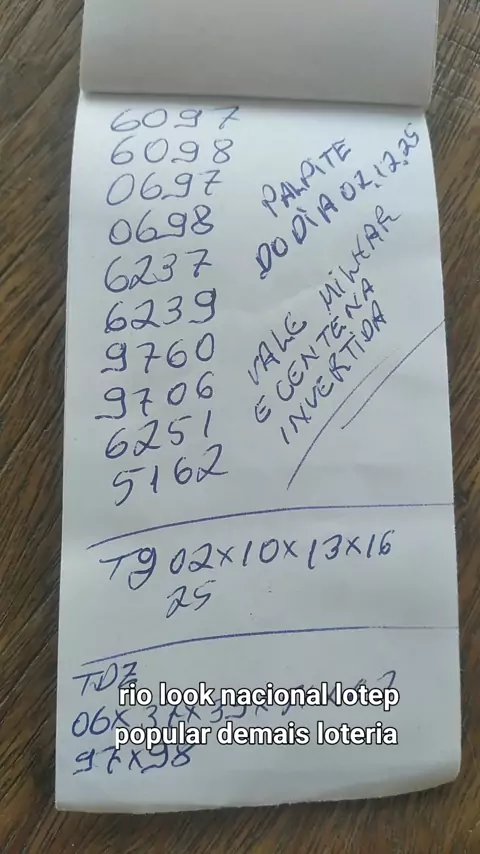 6097
6098
0697
0698
6237
6239
9760
9706
6251
5162
PALPITE
DO DIA 02.12.25
VALE MILHAR
E CENTENA
INVERTIDA
TG 02x10x13x16
25
TDZ
06x37x39x
97x98
rio look nacional lotep
popular demais loteria